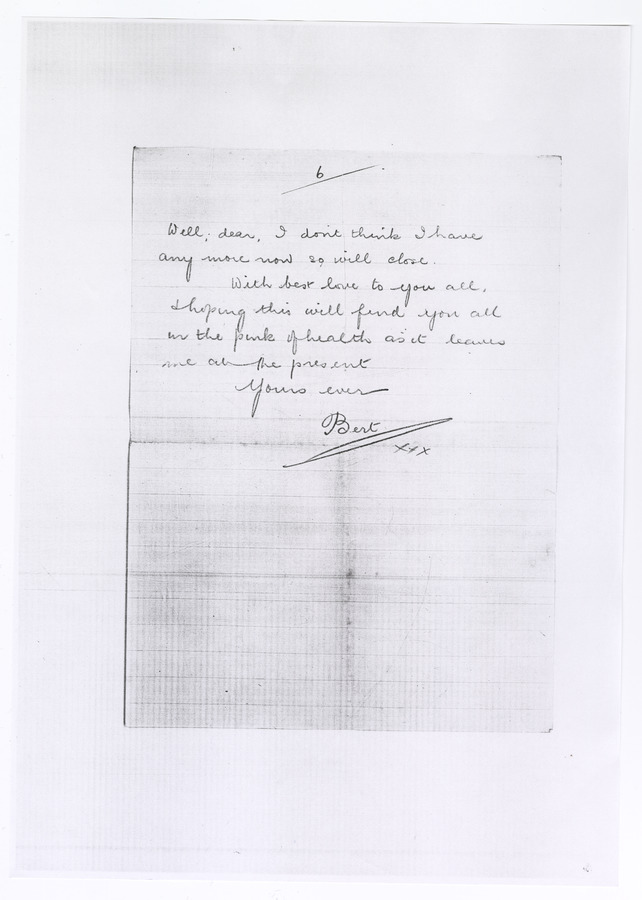 6
Well, dear, I don't think I have
any more now so will close.
With best love to you all,
& hoping this will find you all
in the pink of health as it leaves
me at the present
Yours ever
Bert
xxx